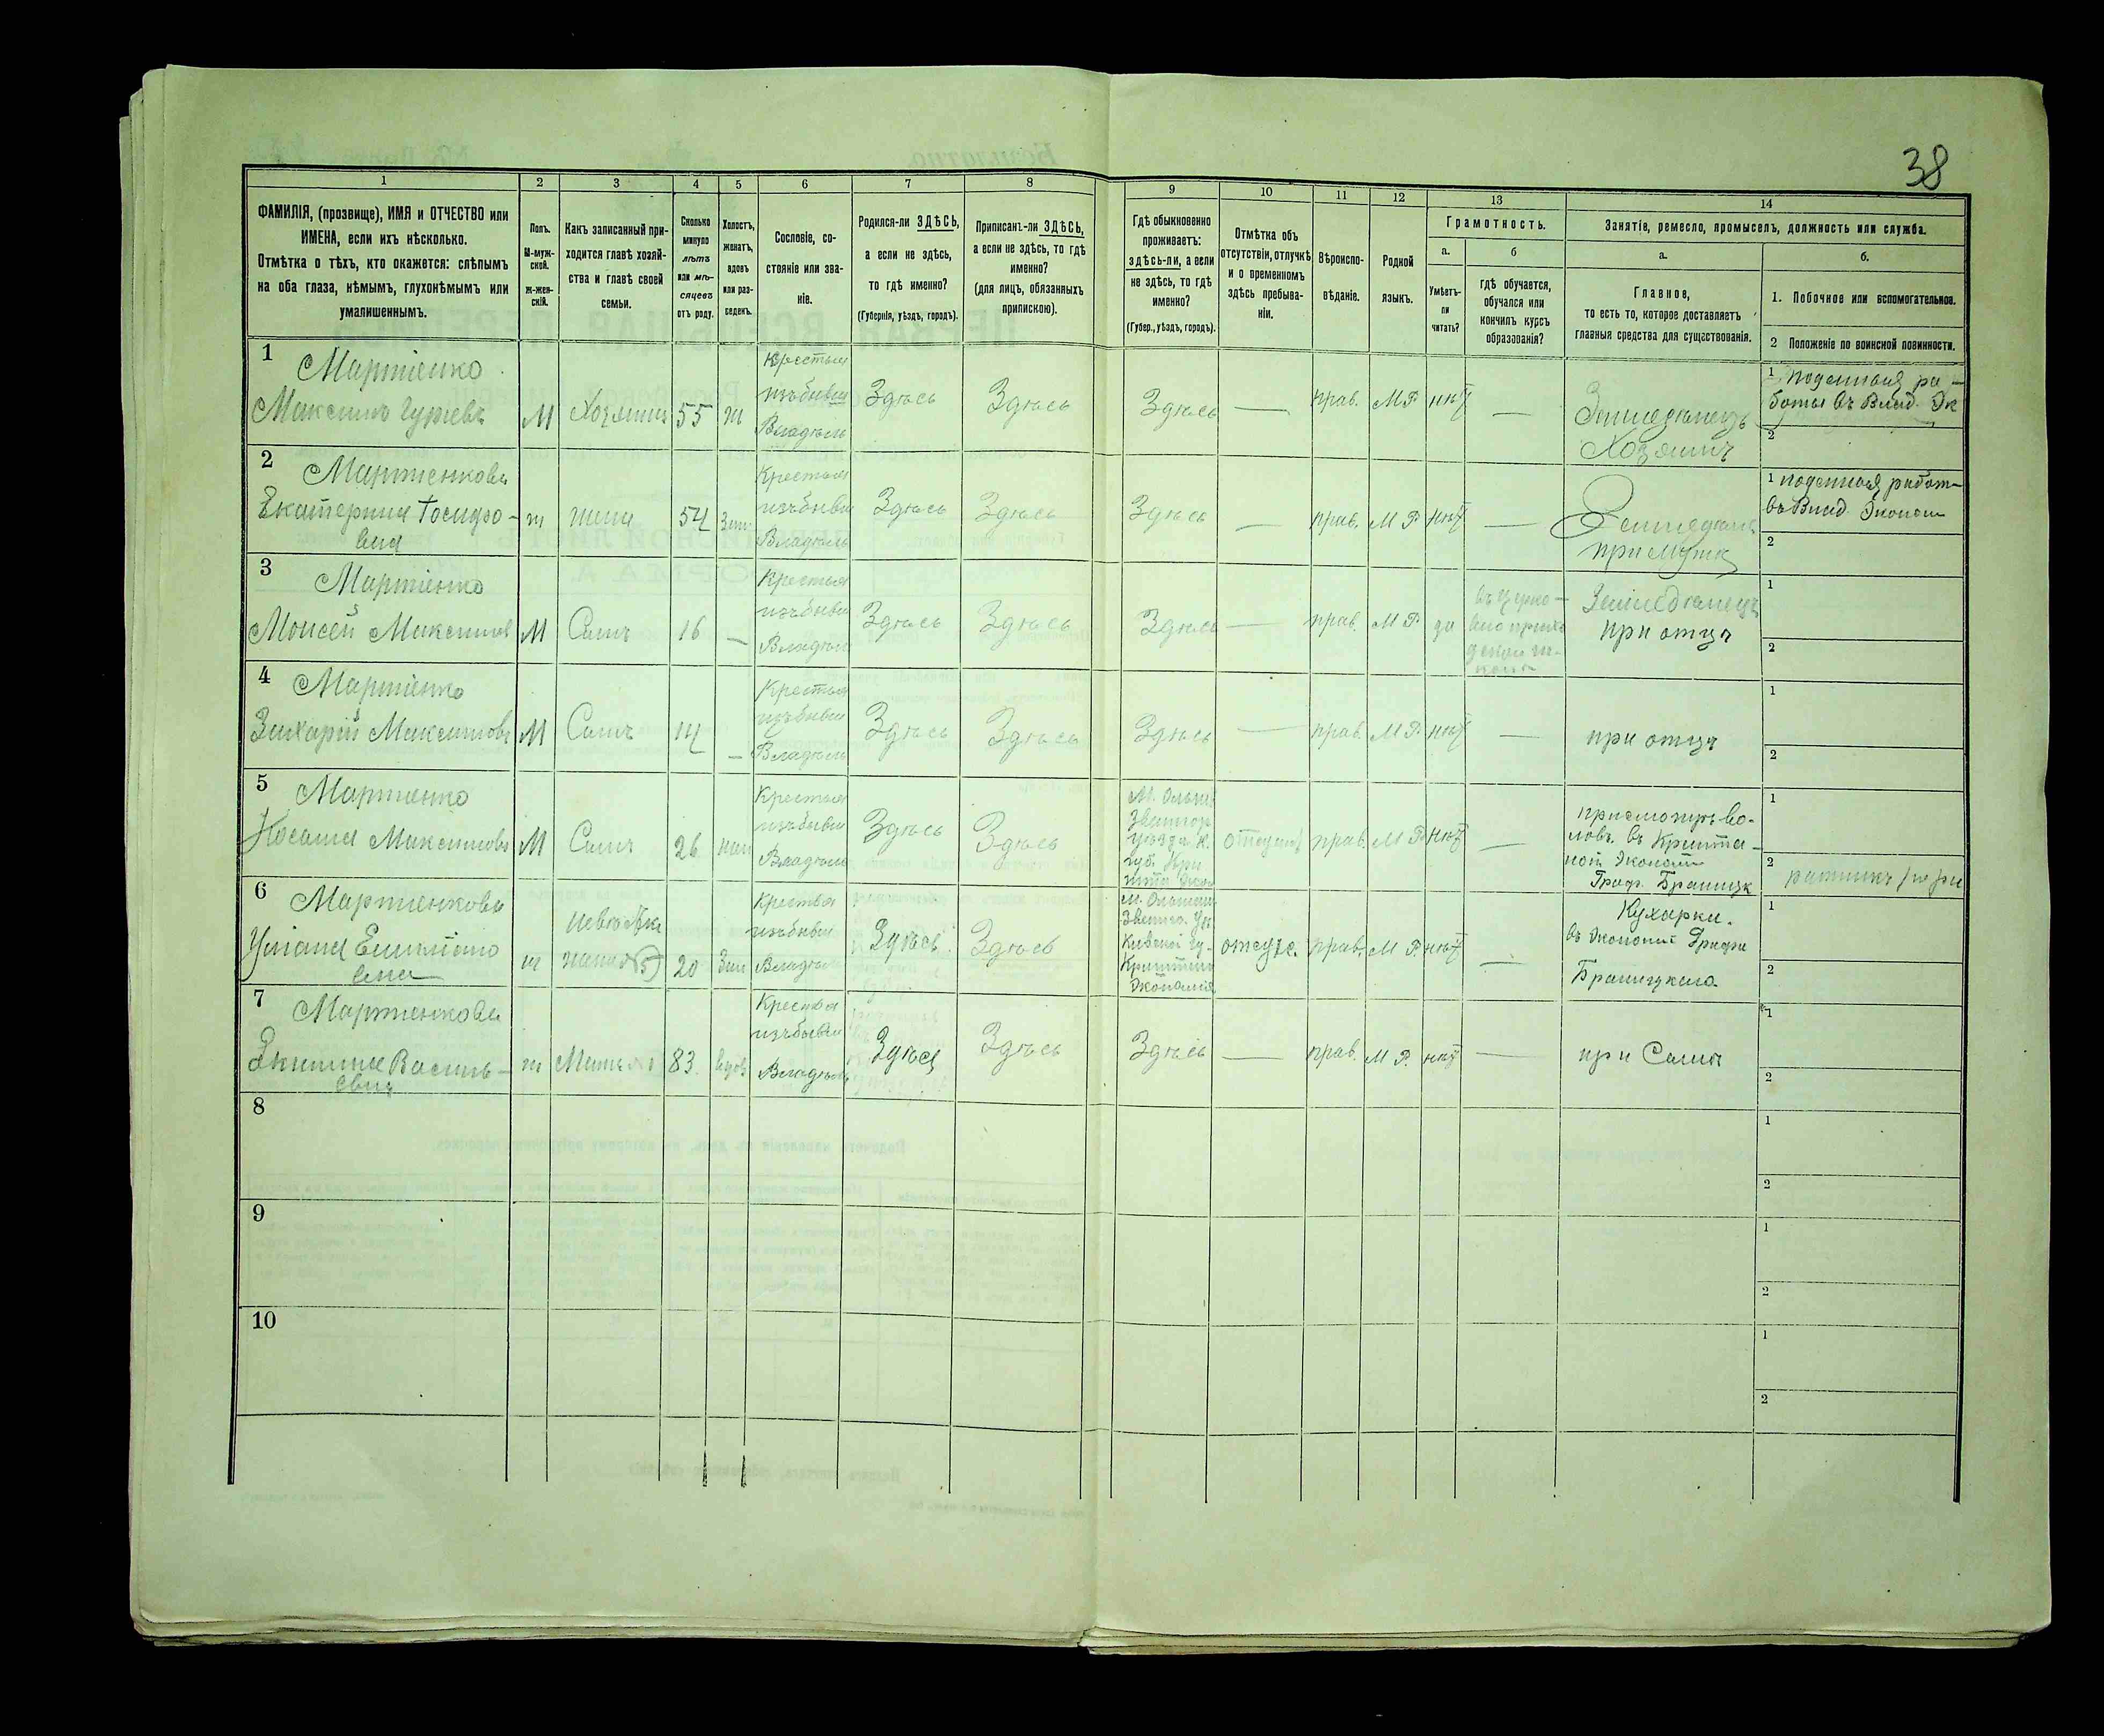 38
1
2
3
4
5
6
7
8
9
10
11
12
13
14
ФАМИЛІЯ, (прозвище), ИМЯ и ОТЧЕСТВО или
ИМЕНА, если ихъ нѣсколько.
Отмѣтка о тѣхъ, кто окажется: слѣпымъ
на оба глаза, нѣмымъ, глухонѣмымъ или
умалишеннымъ.
Полъ.
М-муж-
ской.
ж-жен-
скій.
Какъ записанный при-
ходится главѣ хозяй-
ства и главѣ своей
семьи.
Сколько
минуло
лѣтъ
или мѣ-
сяцевъ
отъ роду.
Холостъ,
женатъ,
вдовъ
или раз-
веденъ.
Сословіе, со-
стояніе или зва-
ніе.
Родился-ли ЗДѢСЬ,
а если не здѣсь,
то гдѣ именно?
(Губернія, уѣздъ, городъ).
Приписанъ-ли ЗДѢСЬ,
а если не здѣсь, то гдѣ
именно?
(для лицъ, обязанныхъ
припискою).
Гдѣ обыкновенно
проживаетъ:
здѣсь-ли, а если
не здѣсь, то гдѣ
именно?
(Губер., уѣздъ, городъ).
Отмѣтка объ
отсутствіи, отлучкѣ
и о временномъ
здѣсь пребыва-
ніи.
Вѣроиспо-
вѣданіе.
Родной
языкъ.
Грамотность.
а.
Умѣетъ-
ли
читать?
б
гдѣ обучается,
обучался или
кончилъ курсъ
образованія?
Занятіе, ремесло, промыселъ, должность или служба.
а.
Главное,
то есть то, которое доставляетъ
главныя средства для существованія.
б.
1. Побочное или вспомогательное.
2 Положеніе по воинской повинности.
1
Мартіенко
Максимъ Гуріевъ
М
Хозяинъ
55
ж
Крестьян
изъ бывш
Владѣль
Здѣсь
Здѣсь
Здѣсь
—
прав.
М Р.
нѣт
—
Земледѣлецъ
Хозяинъ
1 поденная ра-
боты въ Влад. Эк
2
2
Мартіенкова
Екатерина Іосифо-
вна
ж
жена
54
Зам
Крестьян
изъ бывш
Владѣль
Здѣсь
Здѣсь
Здѣсь
—
прав.
М Р.
нѣт
—
Земледѣль
при мужѣ
1 поденная работ-
въ Влад. Эконом
2
3
Мартіенко
Моисей Максимов
М
Сынъ
16
—
Крестья
изъ бывш
Владѣл
Здѣсь
Здѣсь
Здѣсь
—
прав.
М Р.
да
въ церко-
вно прихо
дской ш-
колѣ
Земледѣлецъ
при отцѣ
1
2
4
Мартіенко
Захарій Максимовъ
М
Сынъ
14
—
Крестья
изъ бывш
Владѣль
Здѣсь
Здѣсь
Здѣсь
—
прав.
М Р.
нѣт
—
при отцѣ
1
2
5
Мартіенко
Максимовъ
М
Сынъ
26
жен
Крестья
изъ бывш
Владѣль
Здѣсь
Здѣсь
М. Ольша
Звениг
уѣзда К.
губ.
отсутс
прав.
М Р.
нѣт
—
присмотръ во-
ловъ. въ
Эконом
Граф. Браницк
1
2 ратникъ
6
Мартіенкова
Уліана
ж
невѣстка
жена №5
20
Зам
Крестья
изъ бывш
Владѣл
Здѣсь
Здѣсь
М. Ольшан
Звениго. Уѣ.
Кіевской гу-
Экономія
отсутс.
прав.
М Р.
нѣт
—
Кухарка.
въ Экономіи Графа
Браницкаго
1
2
7
Мартіенкова
Василь-
евна
ж
Мать №1
83.
вдов
Крестья
изъ бывш
Владѣль
Здѣсь
Здѣсь
Здѣсь
—
прав.
М Р.
нѣт
—
при Сынѣ
1
2
8
1
2
9
1
2
10
1
2